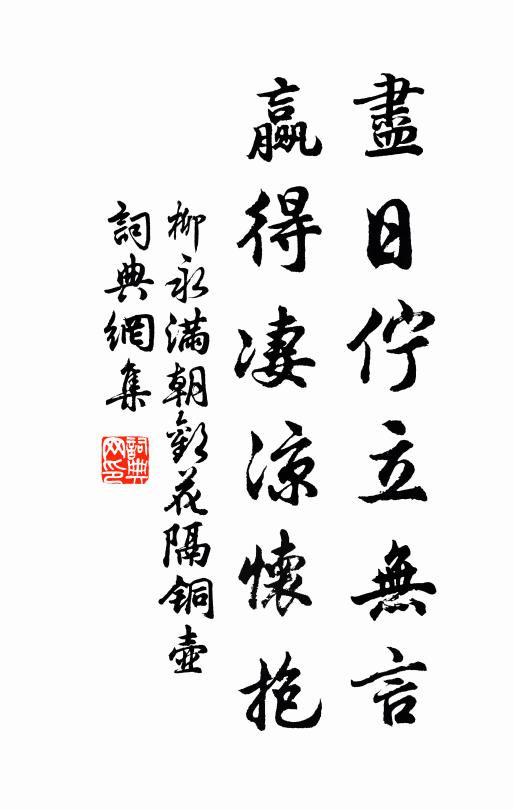 盡日佇立無言
贏得凄涼懷抱
柳永滿朝歡花隔铜壺
詞典網集
詞典網印